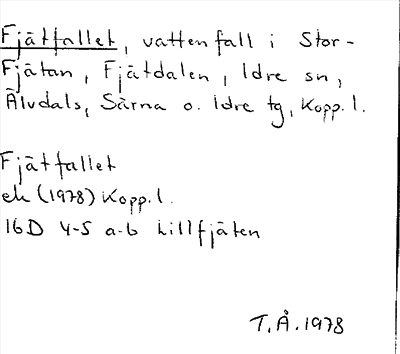 Fjätfallet, vattenfall i Stor-
Fjätan, Fjätdalen, Idre sn,
Älvdals, Särna o. Idre tg, Kopp. l.
Fjätfallet
ek (1978) Kopp. l.
16D 4-5 a-b Lillfjäten
T.Å. 1978